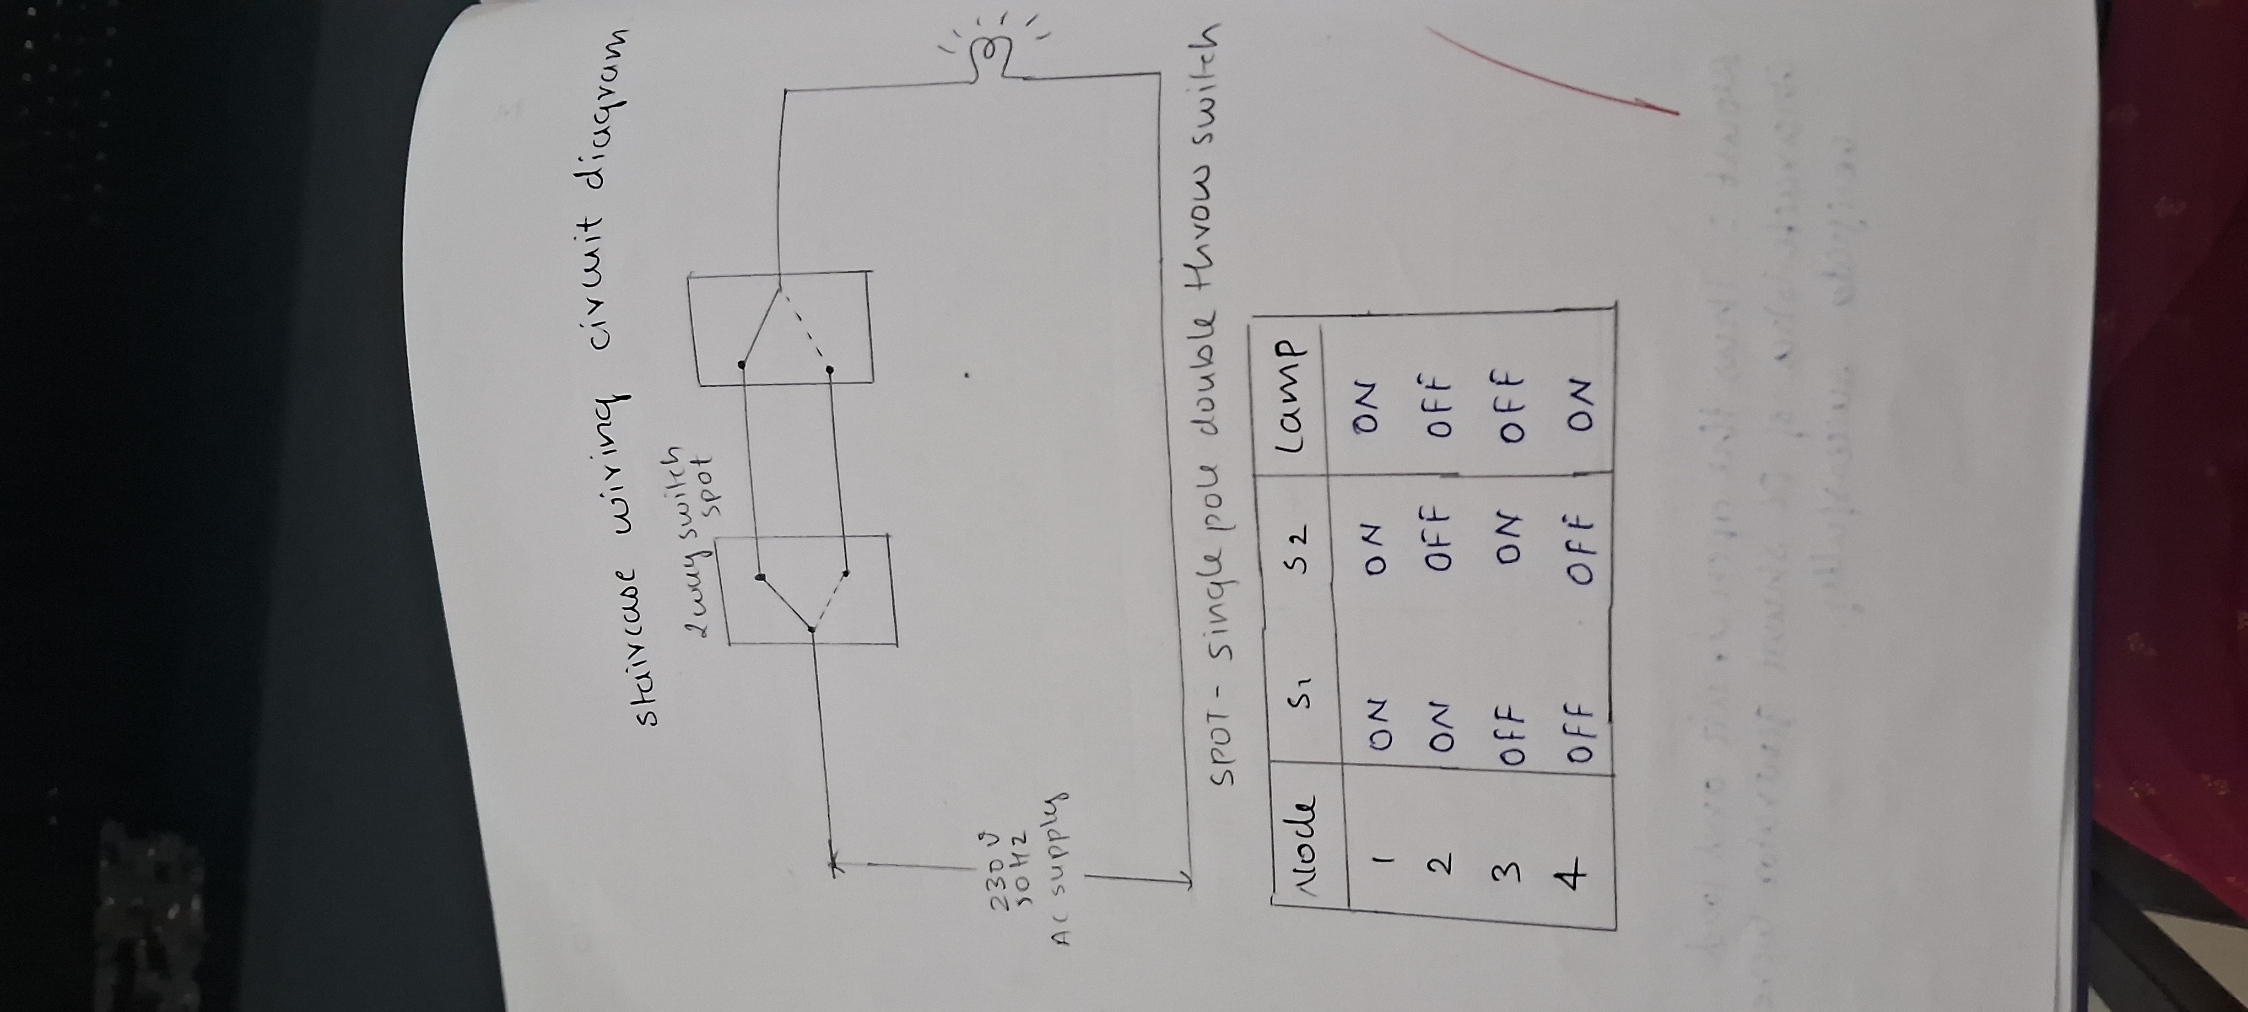 staircase wiring circuit diagram
2way switch
SPOT
230 V
50 HZ
AC supply
SPOT - single pole double throw switch
Node S1 S2 Lamp
1 ON ON ON
2 ON OFF OFF
3 OFF ON OFF
4 OFF OFF ON